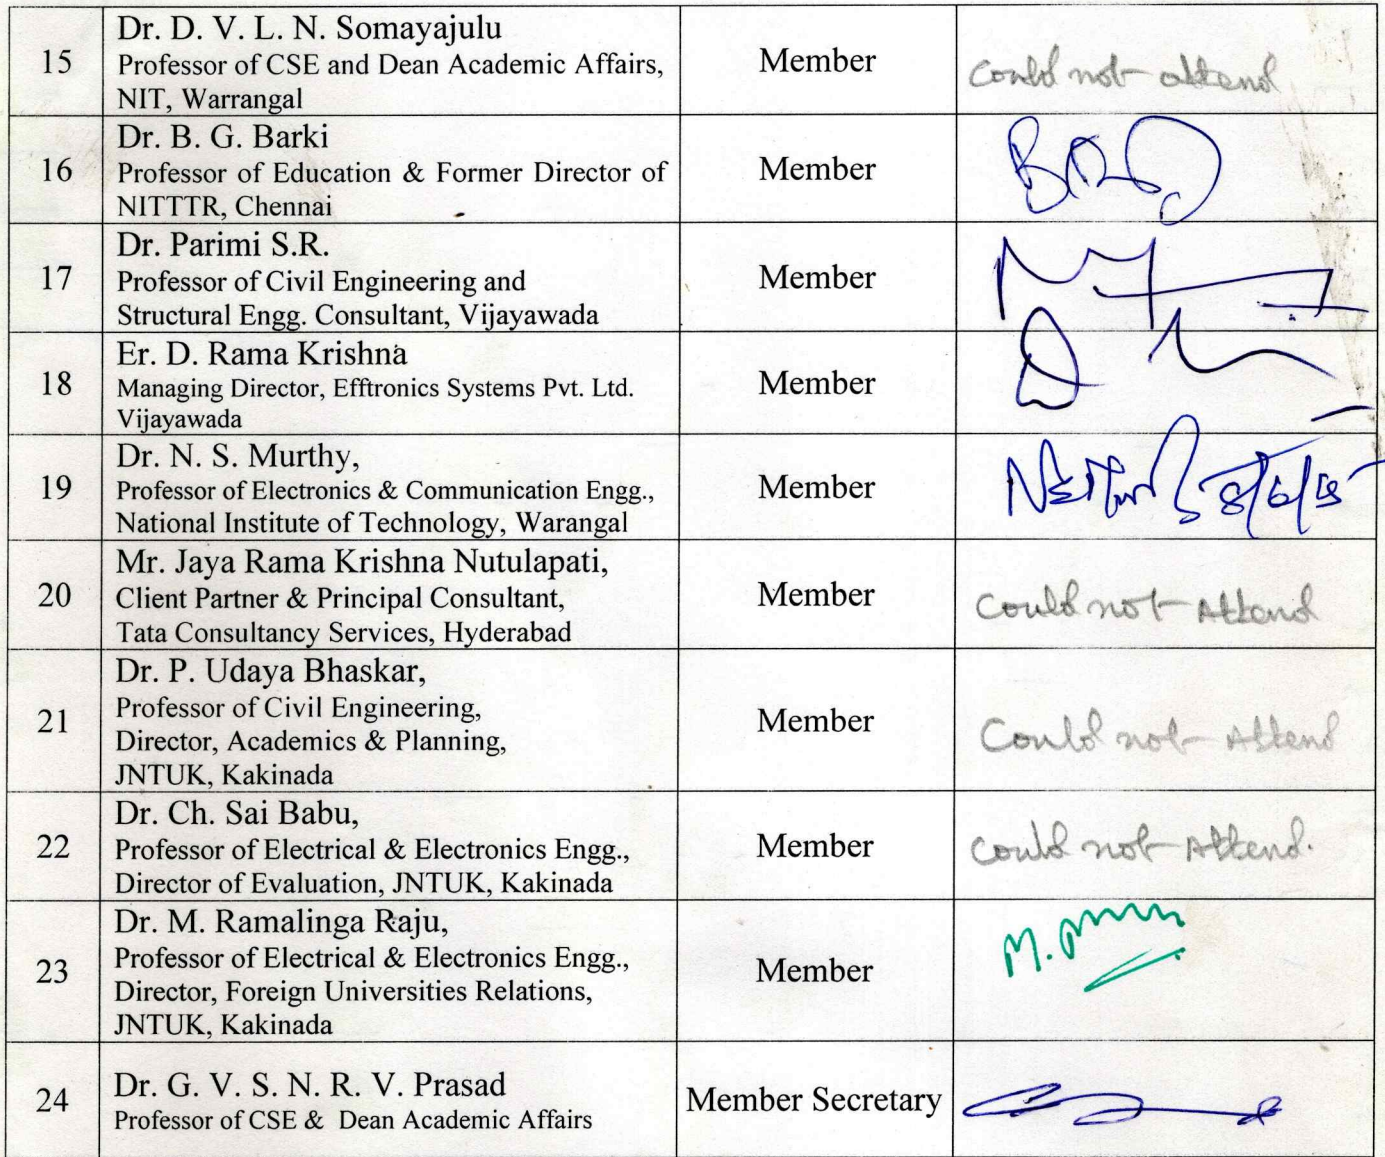 15
Dr. D. V. L. N. Somayajulu
Professor of CSE and Dean Academic Affairs,
NIT, Warrangal
Member
Could not attend
16
Dr. B. G. Barki
Professor of Education & Former Director of
NITTTR, Chennai
Member
17
Dr. Parimi S.R.
Professor of Civil Engineering and
Structural Engg. Consultant, Vijayawada
Member
18
Er. D. Rama Krishna
Managing Director, Efftronics Systems Pvt. Ltd.
Vijayawada
Member
19
Dr. N. S. Murthy,
Professor of Electronics & Communication Engg.,
National Institute of Technology, Warangal
Member
20
Mr. Jaya Rama Krishna Nutulapati,
Client Partner & Principal Consultant,
Tata Consultancy Services, Hyderabad
Member
Could not Attend
21
Dr. P. Udaya Bhaskar,
Professor of Civil Engineering,
Director, Academics & Planning,
JNTUK, Kakinada
Member
Could not Attend
22
Dr. Ch. Sai Babu,
Professor of Electrical & Electronics Engg.,
Director of Evaluation, JNTUK, Kakinada
Member
Could not Attend.
23
Dr. M. Ramalinga Raju,
Professor of Electrical & Electronics Engg.,
Director, Foreign Universities Relations,
JNTUK, Kakinada
Member
24
Dr. G. V. S. N. R. V. Prasad
Professor of CSE & Dean Academic Affairs
Member Secretary